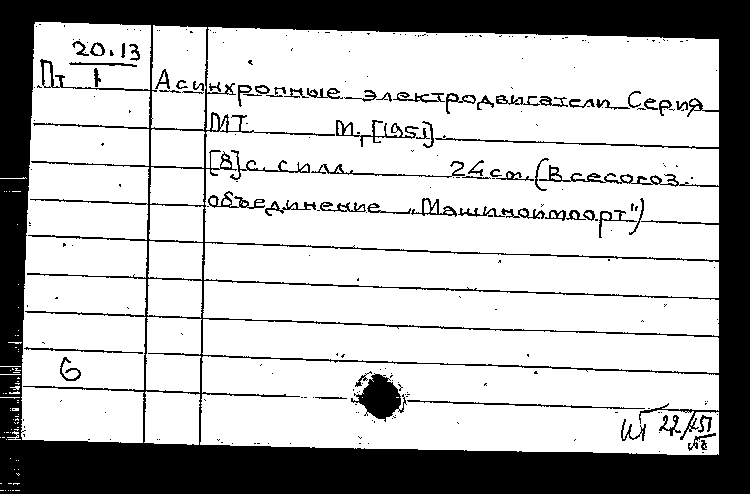 20.13
Пт 1
Асинхронные электродвигатели Серия
МТ. М., [1951].
[8] с. с илл. 24 см. (Всесоюз.
объединение „Машиноимпорт")
6